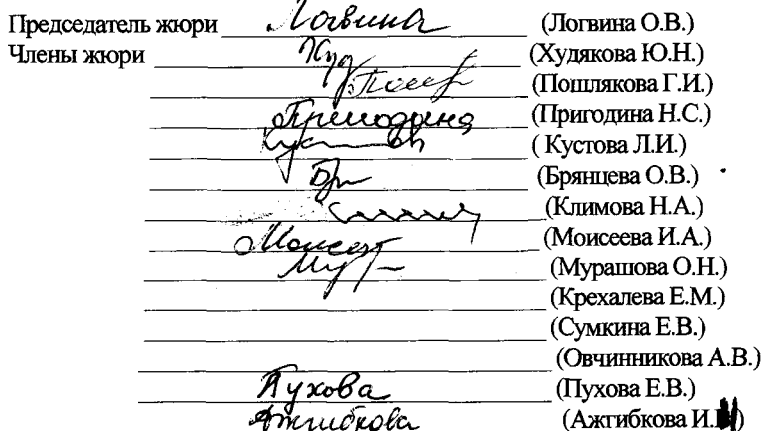 Председатель жюри Логвина (Логвина О.В.)
Члены жюри Худ (Худякова Ю.Н.)
Пошл (Пошлякова Г.И.)
Пригодина (Пригодина Н.С.)
(Кустова Л.И.)
Бр (Брянцева О.В.)
(Климова Н.А.)
Моисеев (Моисеева И.А.)
Мур (Мурашова О.Н.)
(Крехалева Е.М.)
(Сумкина Е.В.)
(Овчинникова А.В.)
Пухова (Пухова Е.В.)
Ажгибкова (Ажгибкова И.